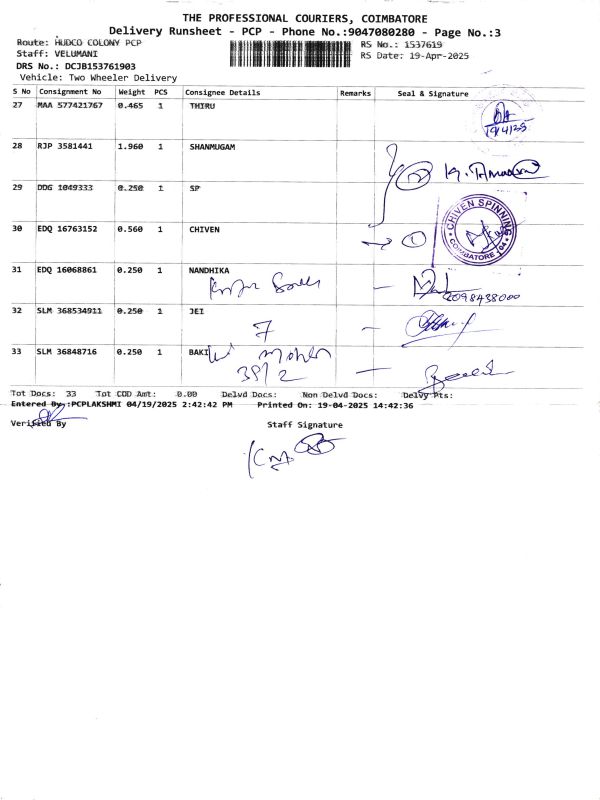 THE PROFESSIONAL COURIERS, COIMBATORE
Delivery Runsheet - PCP - Phone No.:9047080280 - Page No.:3
Route: HUDCO COLONY PCP RS No.: 1537619
Staff: VELUMANI RS Date: 19-Apr-2025
DRS No.: DCJB153761903
Vehicle: Two Wheeler Delivery
S No Consignment No Weight PCS Consignee Details Remarks Seal & Signature
27 MAA 577421767 0.465 1 THIRU
19/4/25
28 RJP 3581441 1.960 1 SHANMUGAM
29 DDG 1049333 0.250 1 SP
30 EDQ 16763152 0.560 1 CHIVEN
1
CHIVEN SPINNING
COIMBATORE
31 EDQ 16068861 0.250 1 NANDHIKA
32 SLM 368534911 0.250 1 JEI
7
33 SLM 36848716 0.250 1 BAKI
Tot Docs: 33 Tot COD Amt: 0.00 Delvd Docs: Non Delvd Docs: Delvy Pts:
Entered By:PCPLAKSHMI 04/19/2025 2:42:42 PM Printed On: 19-04-2025 14:42:36
Verified By Staff Signature